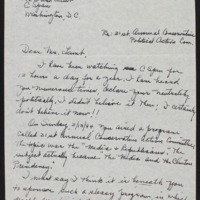 C-Span
Washington, D.C.
Re: 21st Annual Conservative
Political Action Con.
Dear Mr.
I have been watching C-Span for
hours a day for a year. I have heard
you numerous times declare your neutrality
politically. I didn't believe it then; I certainly
don't believe it now!!
On Sunday you aired a program
called 21st Annual Conservative Action Committee,
the topic was the "Media & Republicans". The
subject actually became the Media and the Clinton
Presidency.
I must say I think it is beneath you
to sponsor such a sleazy program in which